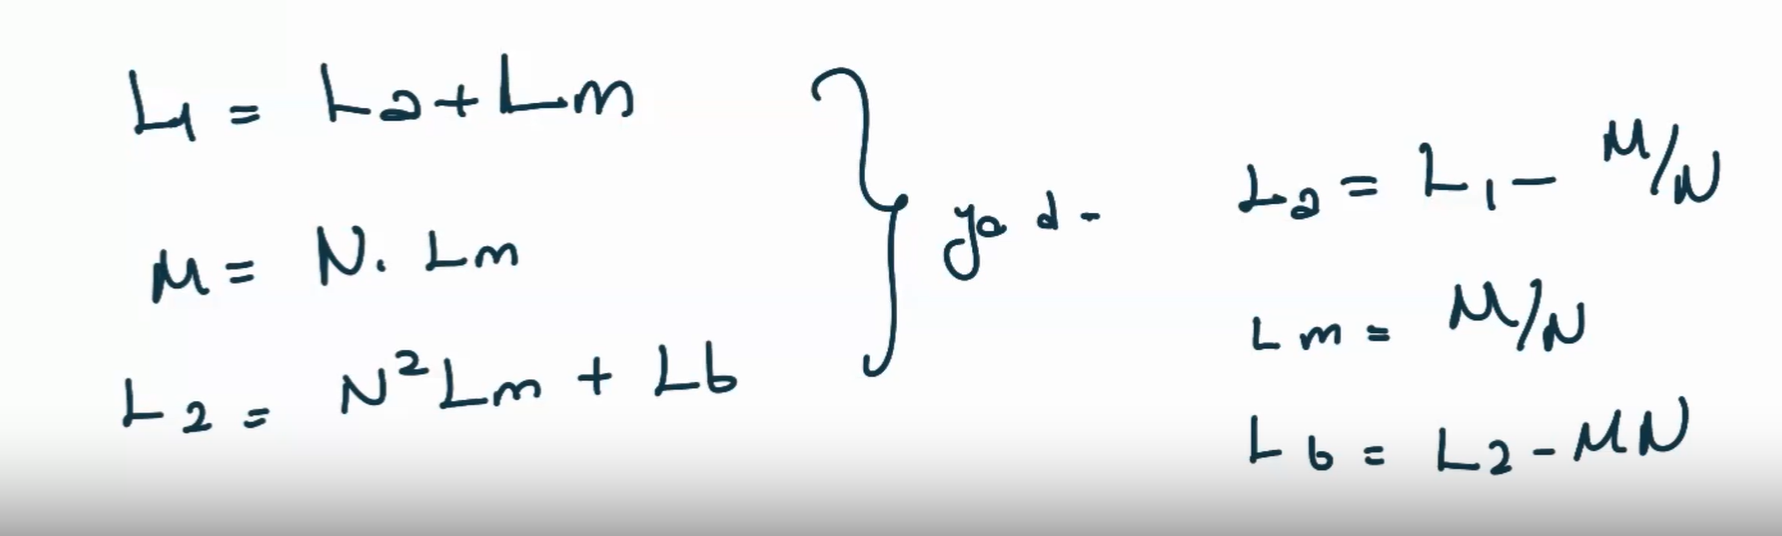 L1 = La + Lm
M = N. Lm
L2 = N²Lm + Lb
La = L1 - M/N
Lm = M/N
Lb = L2 - MN